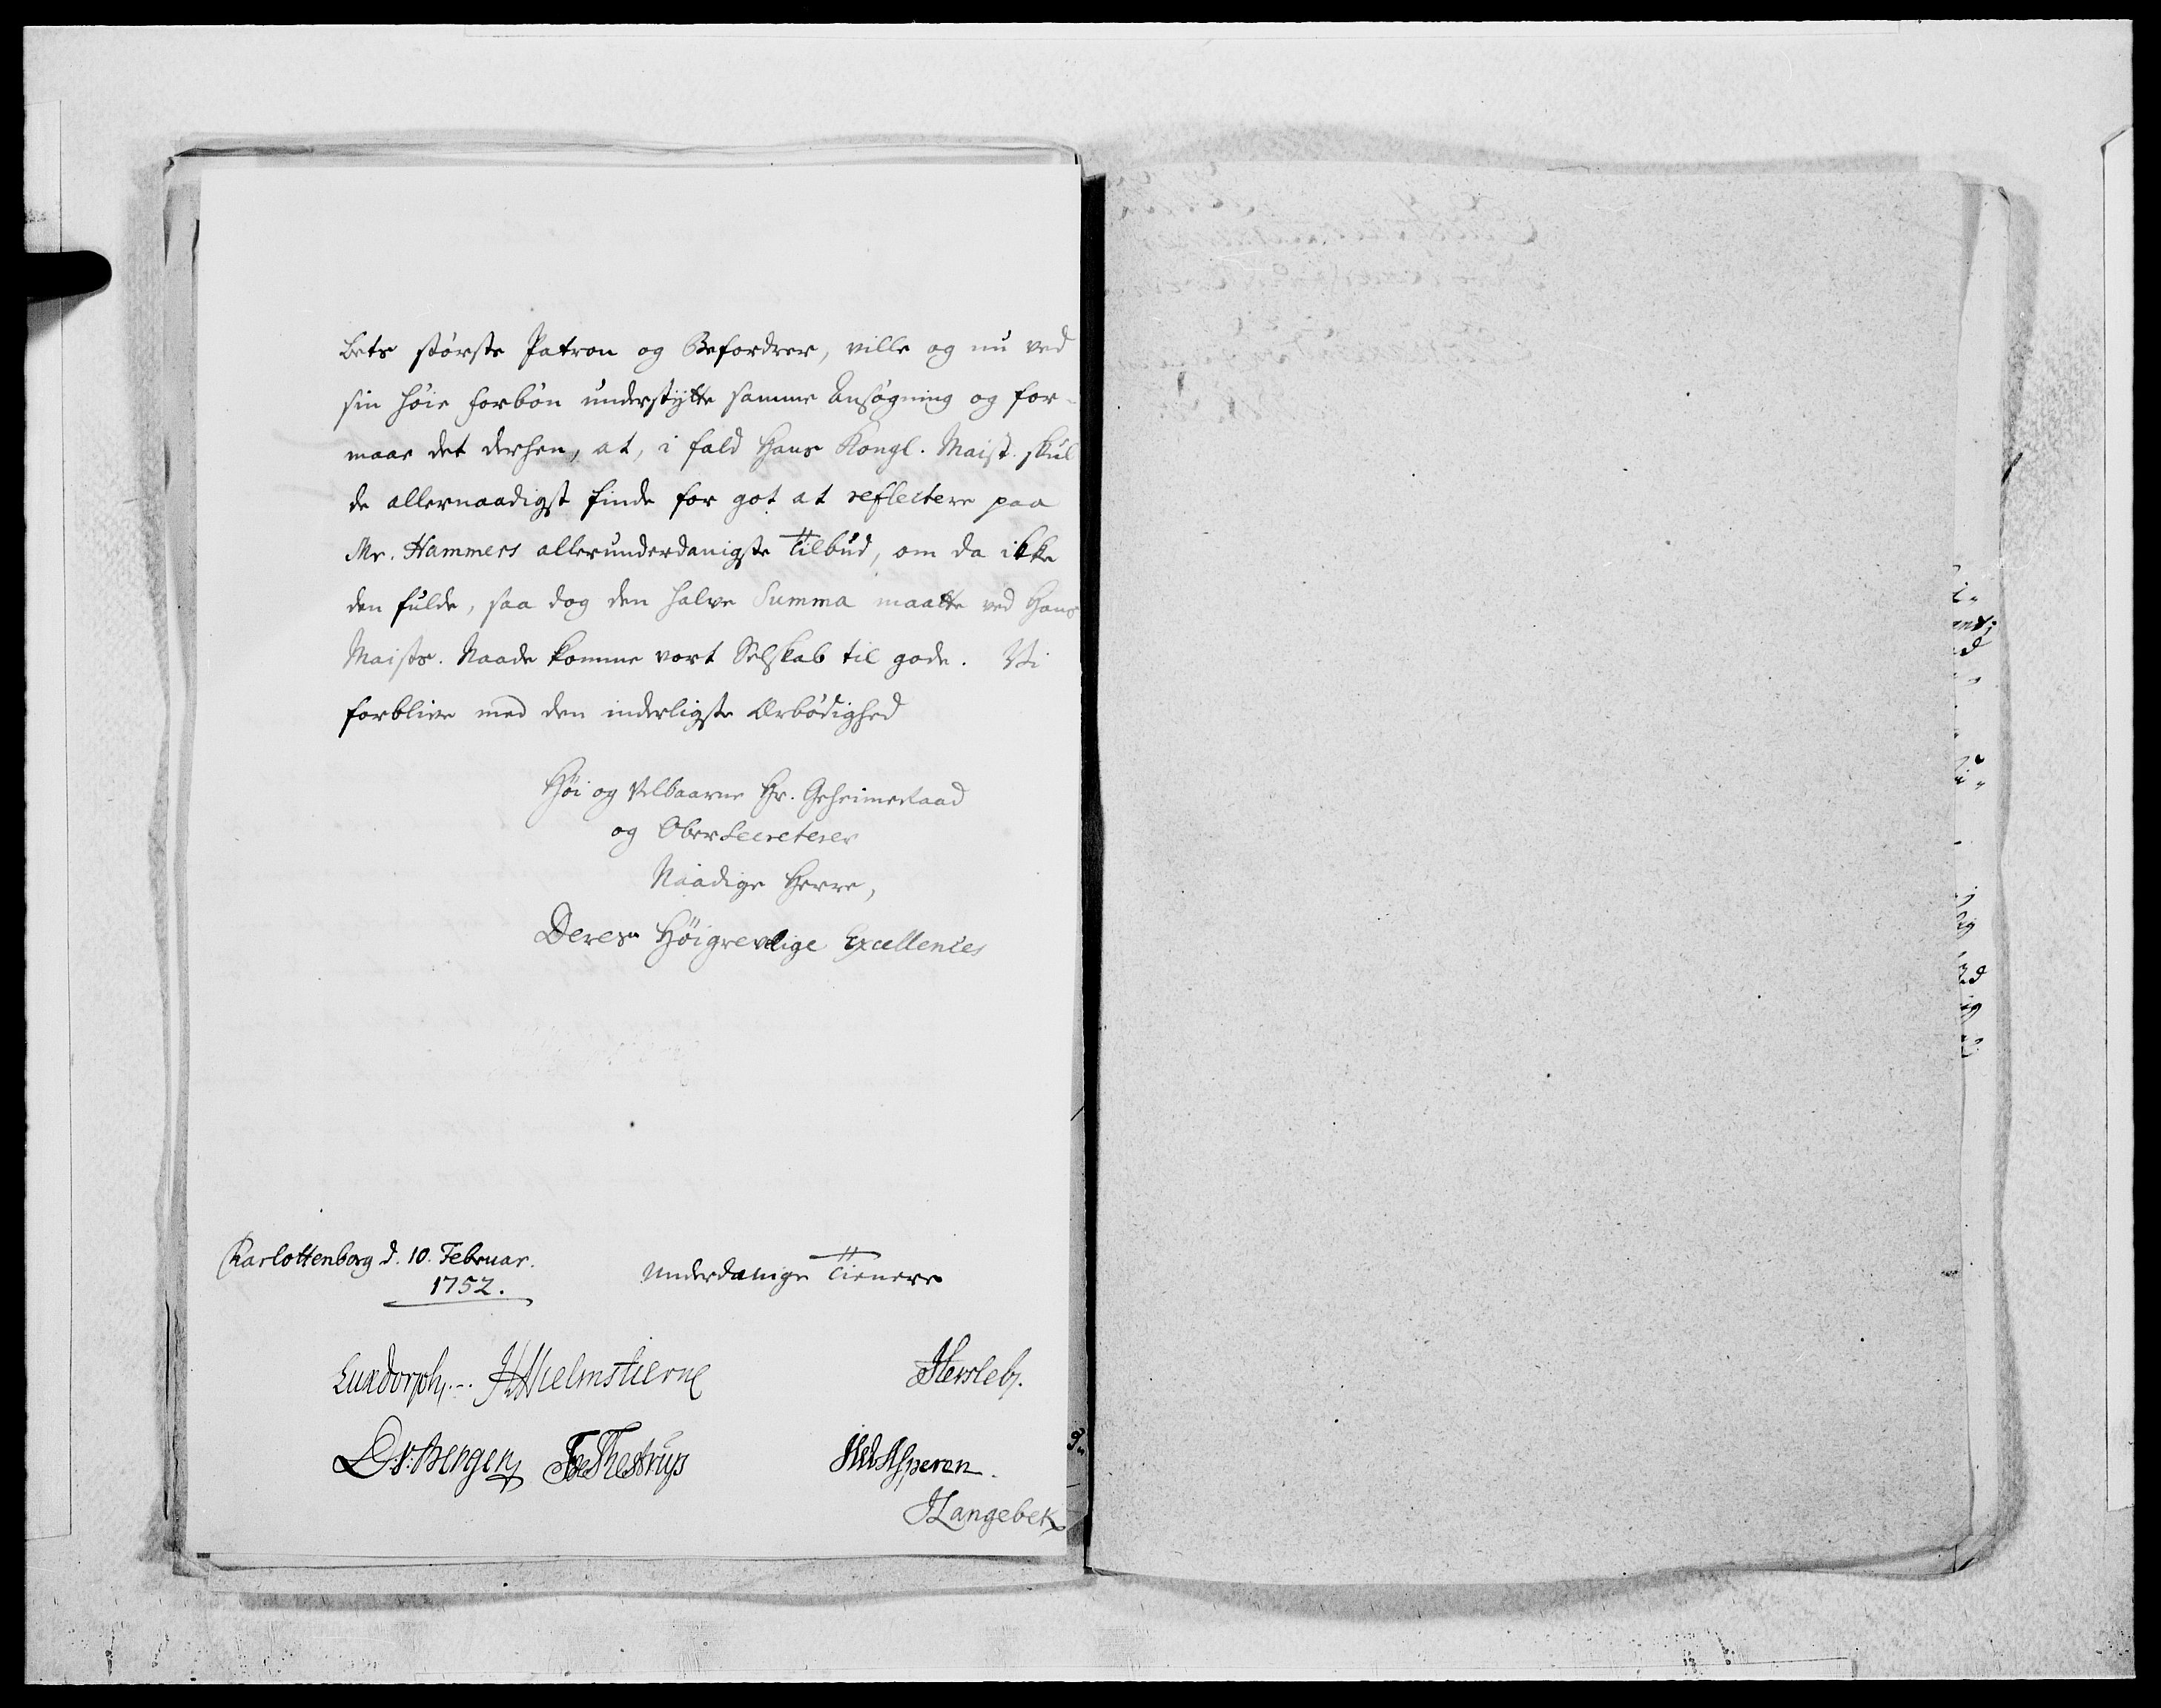 bets største Patron og Befordrer, ville og nu ved
sin høie Forbøn understytte samme Ansøgning og for-
maae det derhen, at, i fald Hans Kongl. Maist. skul
de allernaadigst finde for got at reflectere paa
Mr. Hammers allerunderdanigste Tilbud, om da ikke
den fulde, saa dog den halve Summa maatte ved Hans
Maists. Naade komme vort Selskab til gode. Vi
forblive med den inderligste Ærbødighed
Høi og Velbaarne Hr. Geheimeraad
og OberSecreterer
Naadige Herre,
Deres Høigrevelige Excellences
Charlottenborg d. 10. Februar.
1752.
underdanige Tienere
Luxdorph. HHielmstierne
Hersleb.
D. v. Bergen Thestrup
Asperen.
JLangebek